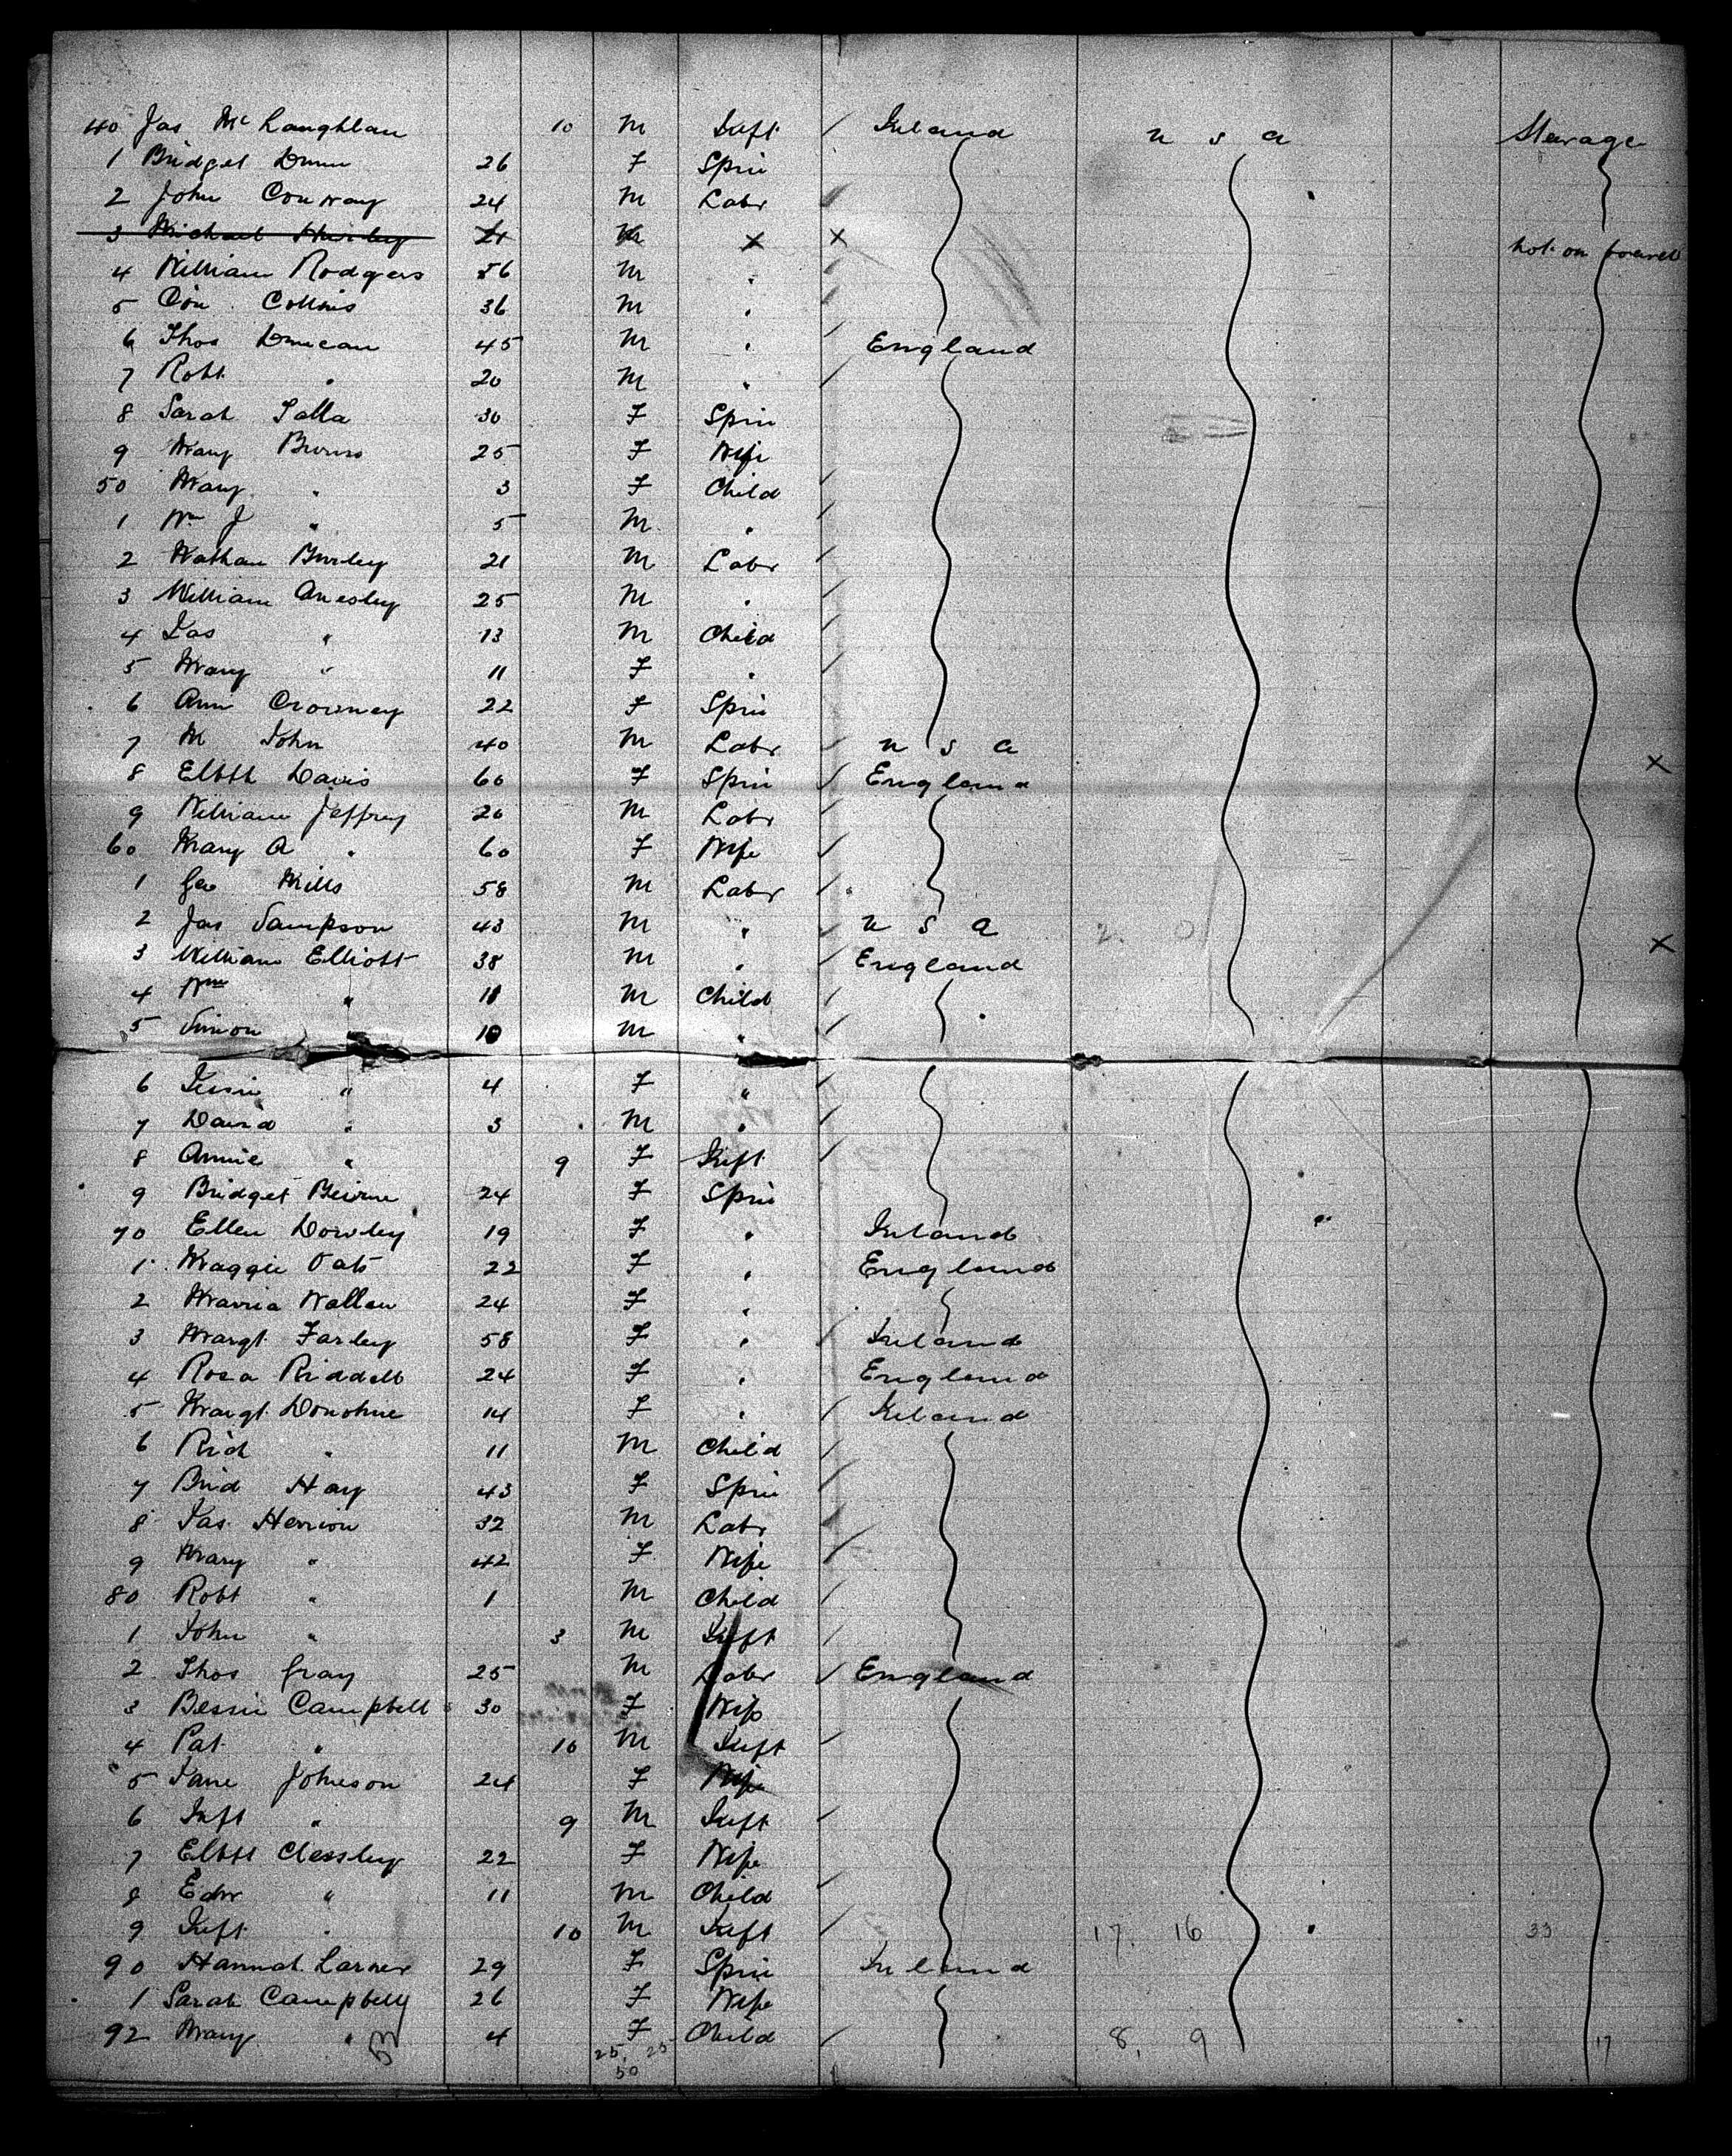 40 Jas McLaughlan 10 M Inft / Ireland U S A Steerage
1 Bridget Dunn 26 F Spin
2 John Conway 24 M Labr /
3 Michael Hurley 21 M × × not on board
4 William Rodgers 56 M "
5 Con Collins 36 M "
6 Thos Duncan 45 M " / England
7 Robt " 20 M " /
8 Sarah Talla 30 F Spin
9 Mary Burns 25 F Wife
50 Mary " 3 F Child /
1 Wm J " 5 M " /
2 Nathan Burley 21 M Labr /
3 William Anesley 25 M " /
4 Jas " 13 M Child /
5 Mary " 11 F " /
6 Ann Crowney 22 F Spin
7 M John 40 M Labr / U S A ×
8 Elbth Davis 60 F Spin / England
9 William Jeffrey 26 M Labr /
60 Mary A " 60 F Wife /
1 Geo Mills 58 M Labr /
2 Jas Sampson 43 M " / U S A 2. 0 ×
3 William Elliott 38 M " / England
4 Wm " 11 M Child /
5 Simon " 10 M " /
6 " 4 F " /
7 David " 3 M " /
8 Annie " 9 F Inft /
9 Bridget Beirne 24 F Spin
70 Ellen Dowley 19 F " Ireland
1 Maggie Oats 22 F " England
2 Maria Wallen 24 F "
3 Margt Farley 58 F " / Ireland
4 Rosa Riddell 24 F " England
5 Margt Donohue 14 F " / Ireland
6 Rich " 11 M Child /
7 Brid Hay 43 F Spin /
8 Jas Herrion 32 M Labr /
9 Mary " 42 F Wife /
80 Robt " 1 M Child /
1 John " 3 M Inft /
2 Thos Gray 25 M Labr / England
3 Bessie Campbell 30 F Wife
4 Pat " 10 M Inft /
5 Jane Johnson 24 F Wife
6 Inft " 9 M Inft /
7 Elbth Clessley 22 F Wife
8 Edw " 11 M Child /
9 Inft " 10 M Inft / 17. 16 33
90 Hannah Larner 29 F Spin Ireland
1 Sarah Campbell 26 F Wife
92 Mary " 4 F Child / 8, 9 17
25, 25
50